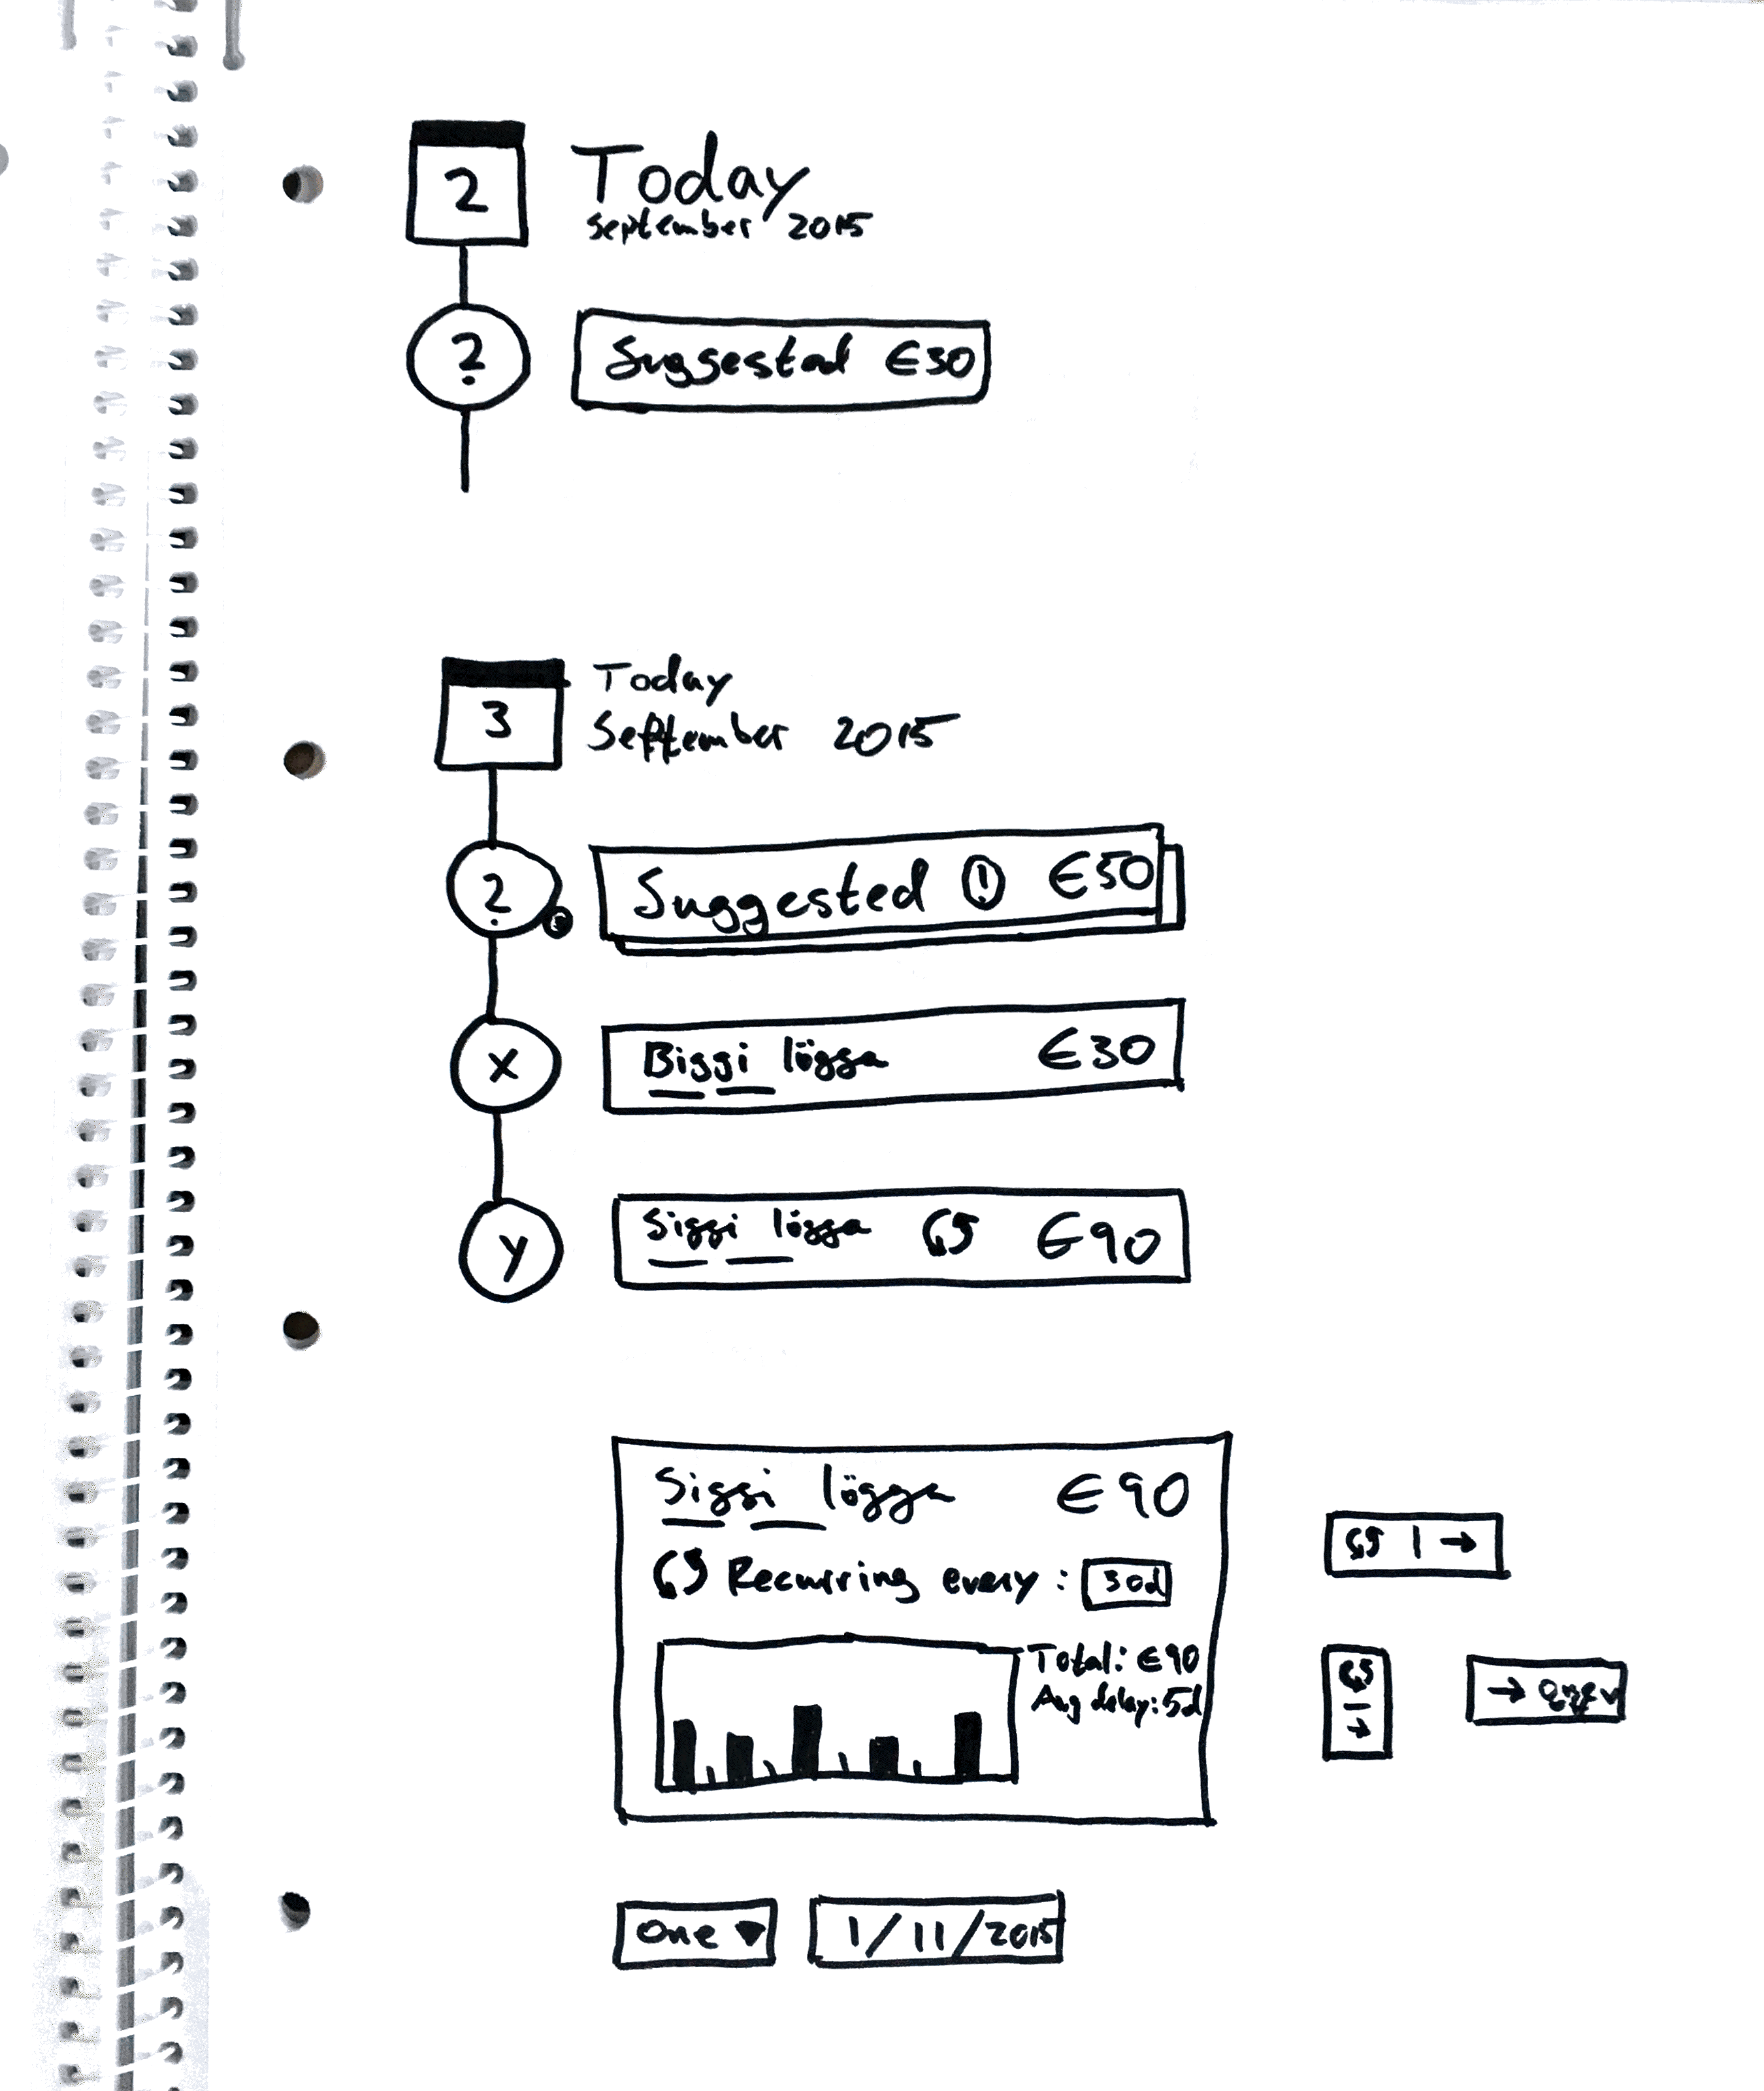 2 Today
september 2015
? Suggested €30
3 Today
September 2015
? Suggested ! €50
X Biggi lögga €30
y Siggi lögga €90
Siggi lögga €90
Recurring every: 30d
Total: €90
Avg delay: 5d
→
→
→
One ▼ 1/11/2015